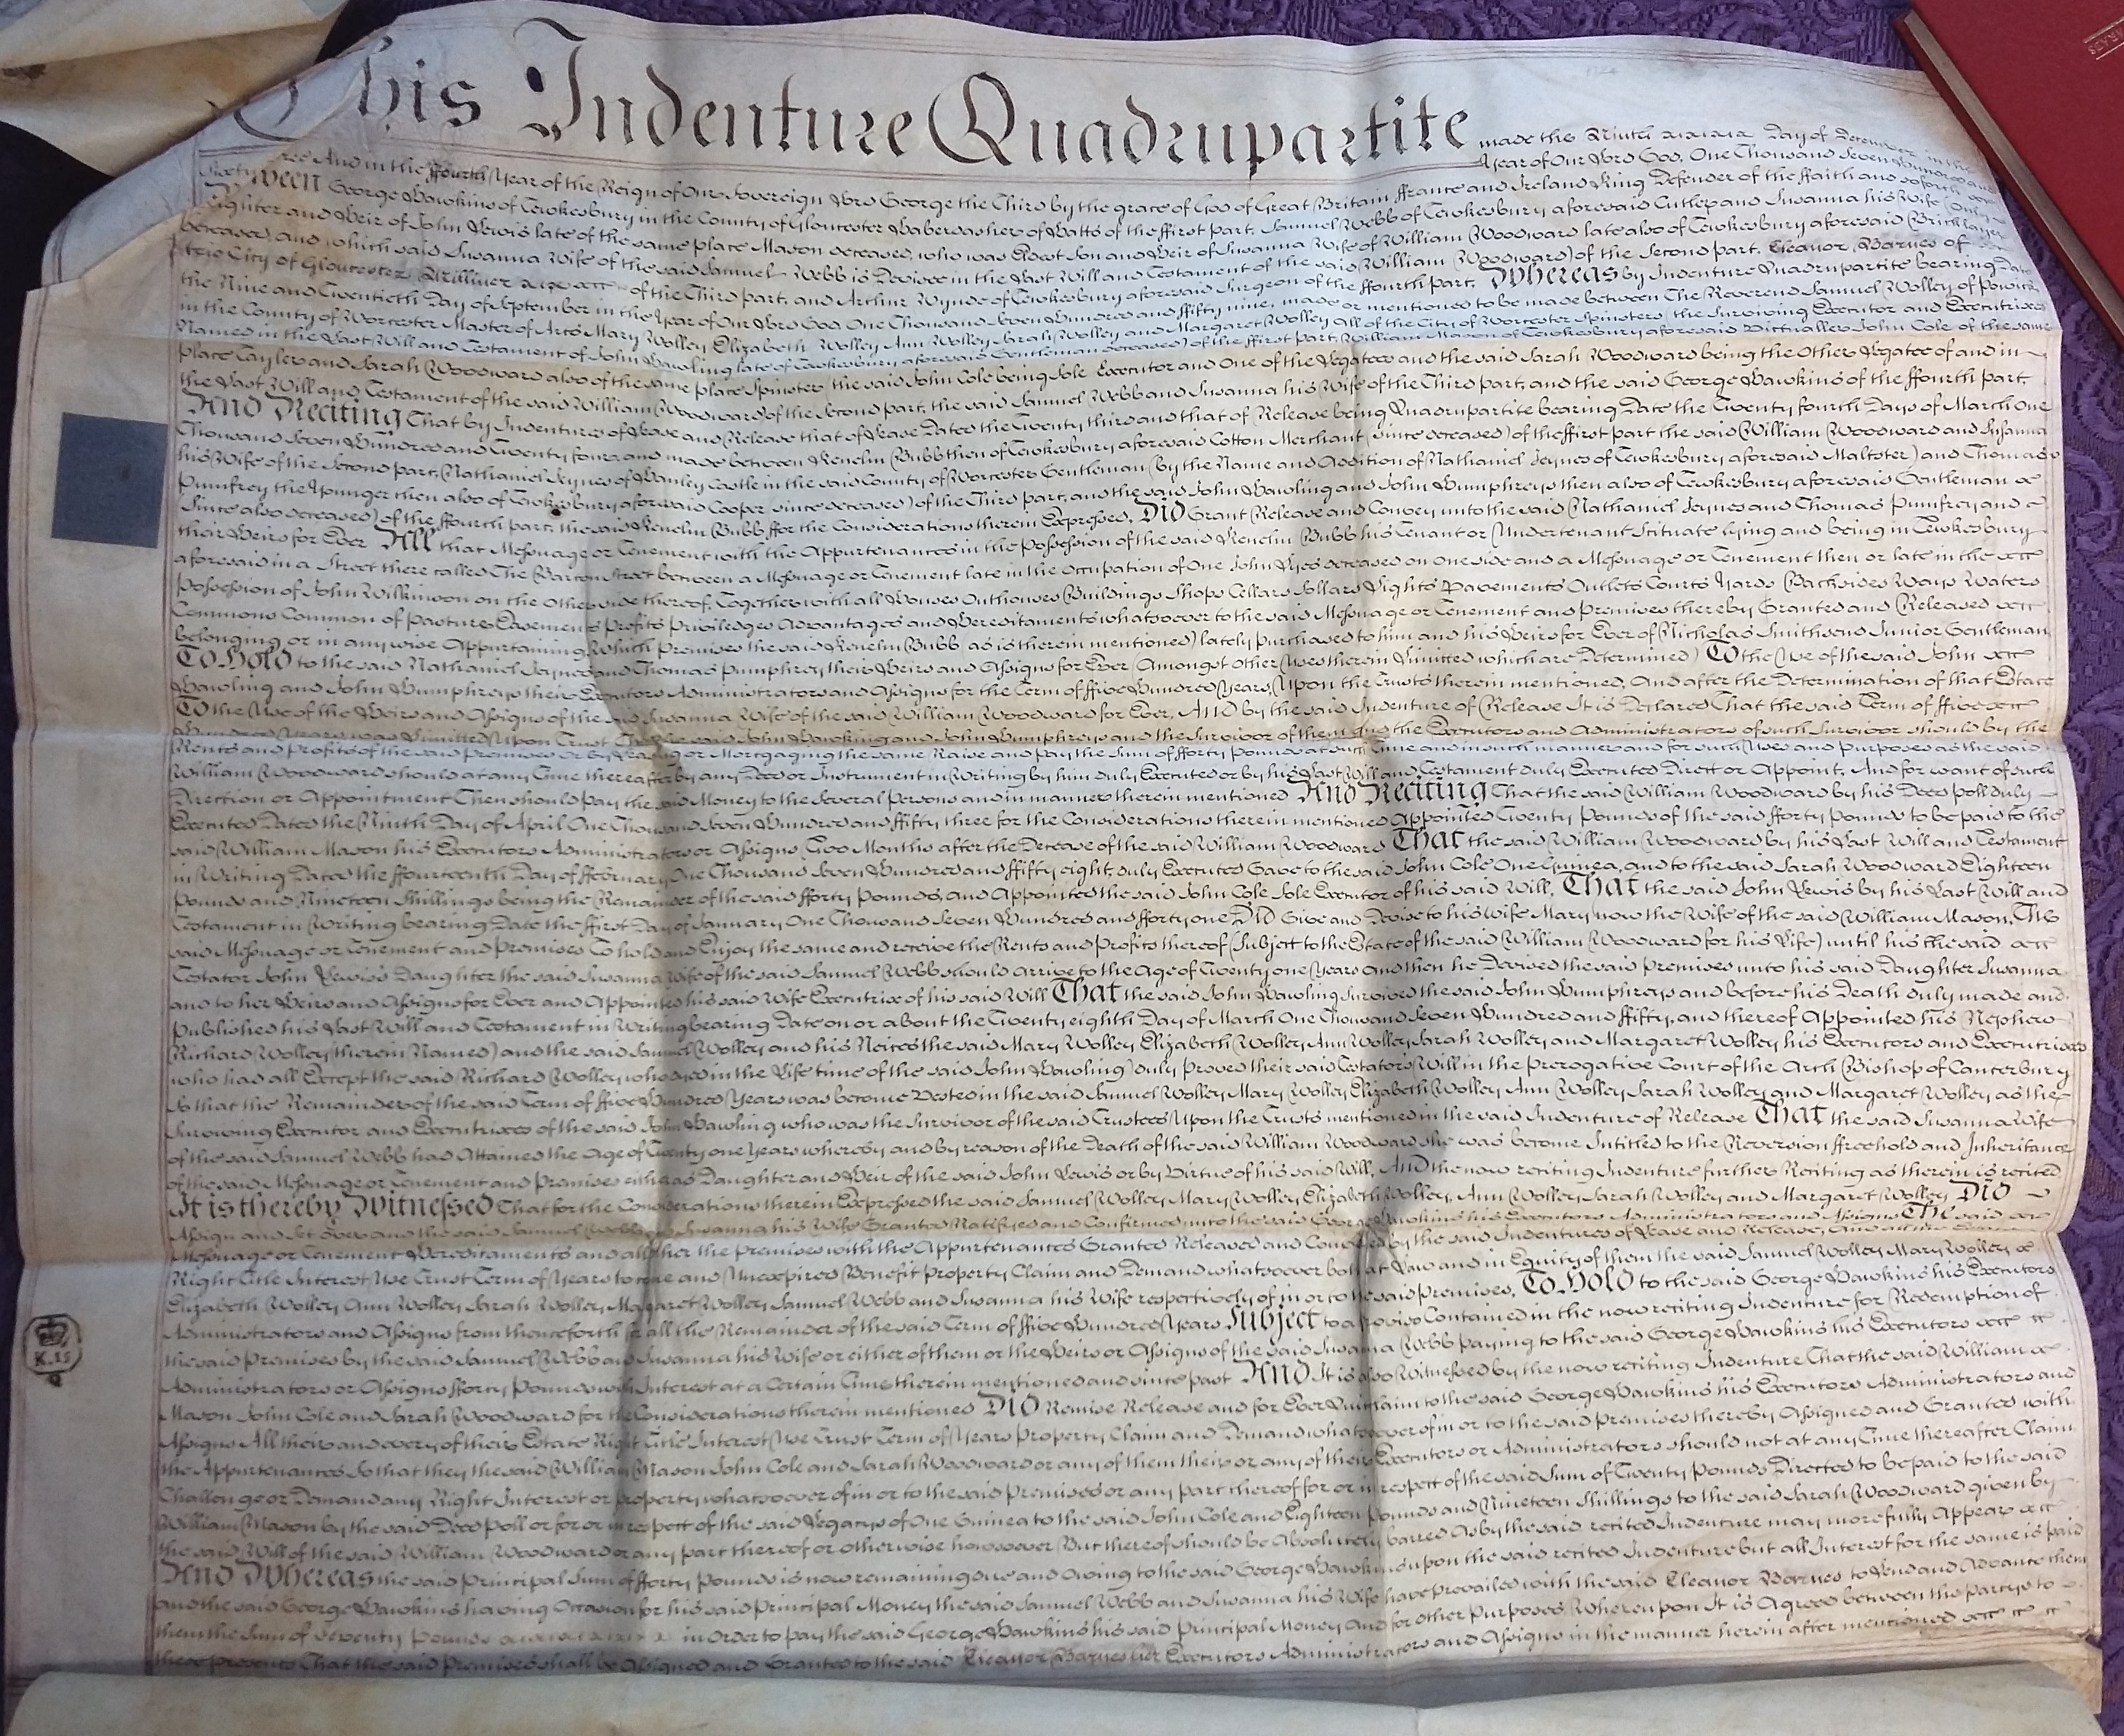 This Indenture Quadrupartite made this Ninth Day of December in the
Year of Our Lord God, One Thousand Seven hundred and
Sixty And in the ffourth Year of the Reign of Our Sovereign Lord George the Third by the grace of God of Great Britain ffrance and Ireland King Defender of the ffaith and so forth
Between George Hawkins of Tewkesbury in the County of Gloucester Haberdasher of Hatts of the ffirst part, Samuel Webb of Tewkesbury aforesaid Cutler and Susanna his Wife Only
Daughter and Heir of John Lewis late of the same place Mason deceased, who was Eldest Son and Heir of Susanna Wife of William Woodward late also of Tewkesbury aforesaid Bricklayer
deceased, and which said Susanna Wife of the said Samuel Webb is Devisee in the Last Will and Testament of the said William Woodward) of the Second part, Eleanor Barnes of
the City of Gloucester Milliner of the Third part, and Arthur Wynde of Tewkesbury aforesaid Surgeon of the ffourth part. Whereas by Indenture Quadrupartite bearing Date
the Nine and Twentieth Day of September in the Year of Our Lord God One Thousand Seven Hundred and ffifty nine, made or mentioned to be made between The Reverend Samuel Wolley of Powick
in the County of Worcester Master of Arts Mary Wolley Elizabeth Wolley Ann Wolley Sarah Wolley and Margaret Wolley all of the City of Worcester Spinsters the Surviving Executor and Executrixes
Named in the Last Will and Testament of John Hawling late of Tewkesbury aforesaid Gentleman deceased) of the ffirst Part, William Mason of Tewkesbury aforesaid Victualler John Cole of the same
place Taylor and Sarah Woodward also of the same place Spinster the said John Cole being Sole Executor and One of the Legatees and the said Sarah Woodward being the Other Legatee of and in
the Last Will and Testament of the said William Woodward) of the Second part, the said Samuel Webb and Susanna his Wife of the Third part, and the said George Hawkins of the ffourth part.
And Reciting That by Indentures of Lease and Release that of Lease Dated the Twenty third and that of Release being Quadrupartite bearing Date the Twenty fourth Days of March One
Thousand Seven Hundred and Twenty four, and made between Kenelm Bubb then of Tewkesbury aforesaid Cotton Merchant (since deceased) of the ffirst part the said William Woodward and Susanna
his Wife of the Second part, Nathaniel Jeynes of Hanley Castle in the said County of Worcester Gentleman (by the Name and Addition of Nathaniel Jeynes of Tewkesbury aforesaid Maltster) and Thomas
Pumfrey the Younger then also of Tewkesbury aforesaid Cooper since deceased) of the Third part, and the said John Hawling and John Humphreys then also of Tewkesbury aforesaid Gentleman
Since also deceased) of the ffourth part, the said Kenelm Bubb ffor the Considerations therein Expressed, Did Grant Release and Convey unto the said Nathaniel Jeynes and Thomas Pumfrey and
their Heirs for Ever All that Messuage or Tenement with the Appurtenances in the Possession of the said Kenelm Bubb his Tenant or Undertenant Scituate lying and being in Tewkesbury
aforesaid in a Street there called The Barton Street between a Messuage or Tenement late in the Occupation of One John deceased on One side and a Messuage or Tenement then or late in the
Possession of John Wilkinson on the Other side thereof, Together with all Houses Outhouses Buildings Shops Cellars Sollars Lights Pavements Outlets Courts Yards Backsides Ways Waters
Commons Common of Pasture Easements Profits Priviledges Advantages and Hereditaments whatsoever to the said Messuage or Tenement and Premises thereby Granted and Released
belonging or in anywise Appurtaining, Which Premises the said Kenelm Bubb as is therein mentioned) lately purchased to him and his Heirs for Ever of Nicholas Smithsend Junior Gentleman,
To Hold to the said Nathaniel Jeynes and Thomas Pumphrey their Heirs and Assigns for Ever (Amongst Other Uses therein Limitted which are Determined) To the Use of the said John
Hawling and John Humphreys their Executors Administrators and Assigns for the Term of ffive Hundred Years, Upon the Trusts therein mentioned, And after the Determination of that Estate
To the Use of the Heirs and Assigns of the said Susanna Wife of the said William Woodward for Ever, And by the said Indenture of Release It is Declared That the said Term of ffive
Hundred Years was Limitted Upon Trust the said John Hawling and John Humphreys and the Survivor of them and the Executors and Administrators of such Survivor should by the
Rents and Profits of the said Premises Or by Leasing or Mortgaging the same Raise and pay the Sum of fforty Pounds at such Time and in such manner and for such Uses and Purposes as the said
William Woodward should at any Time thereafter by any Deed or Instrument in Writing by him duly Executed or by his Last Will and Testament duly Executed Direct or Appoint. And for want of such
Direction or Appointment Then should Pay the said Money to the Several Persons and in manner therein mentioned And Reciting That the said William Woodward by his Deed Poll duly
Executed Dated the Ninth Day of April One Thousand Seven Hundred and ffifty three for the Considerations therein mentioned Appointed Twenty Pounds of the said fforty Pounds to be paid to the
said William Mason his Executors Administrators or Assigns Two Months after the Decease of the said William Woodward That the said William Woodward by his Last Will and Testament
in Writing Dated the ffourteenth Day of ffebruary One Thousand Seven Hundred and ffifty eight, duly Executed Gave to the said John Cole One Guinea, and to the said Sarah Woodward Eighteen
Pounds and Nineteen Shillings being the Remainder of the said fforty Pounds, and Appointed the said John Cole Sole Executor of his said Will, That the said John Lewis by his Last Will and
Testament in Writing bearing Date the ffirst Day of January One Thousand Seven Hundred and fforty one Did Give and Devise to his Wife Mary now the Wife of the said William Mason, The
said Messuage or Tenement and Premises To hold and Enjoy the same and receive the Rents and Profits thereof (Subject to the Estate of the said William Woodward for his Life) until his the said
Testator John Lewis's Daughter the said Susanna Wife of the said Samuel Webb should arrive to the Age of Twenty one Years and then he Devised the said Premises unto his said Daughter Susanna
and to her Heirs and Assigns for Ever and Appointed his said Wife Executrix of his said Will That the said John Hawling Survived the said John Humphreys and before his Death duly made and
Published his Last Will and Testament in Writing bearing Date on or about the Twenty eighth Day of March One Thousand Seven Hundred and ffifty, and thereof Appointed his Nephew
Richard Wolley (therein Named) and the said Samuel Wolley and his Neices the said Mary Wolley Elizabeth Wolley Ann Wolley Sarah Wolley and Margaret Wolley his Executors and Executrixes
who had all Except the said Richard Wolley who died in the Life time of the said John Hawling) duly Proved their said Testators Will in the Prerogative Court of the Arch Bishop of Canterbury
So that the Remainder of the said Term of ffive Hundred Years was become Vested in the said Samuel Wolley Mary Wolley Elizabeth Wolley Ann Wolley Sarah Wolley and Margaret Wolley as the
Surviving Executor and Executrixes of the said John Hawling who was the Survivor of the said Trustees Upon the Trusts mentioned in the said Indenture of Release That the said Susanna Wife
of the said Samuel Webb had Attained the Age of Twenty one Years whereby and by reason of the Death of the said William Woodward she was become Intitled to the Reversion ffreehold and Inheritance
of the said Messuage or Tenement and Premises either as Daughter and Heir of the said John Lewis or by Virtue of his said Will, And the now reciting Indenture further Reciting as therein is recited
It is thereby Witnessed That for the Considerations therein Expressed the said Samuel Wolley Mary Wolley Elizabeth Wolley, Ann Wolley Sarah Wolley and Margaret Wolley Did
Assign and Set over and the said Samuel Webb and Susanna his Wife Granted Ratifyed and Confirmed unto the said George Hawkins his Executors Administrators and Assigns The said
Messuage or Tenement Hereditaments and all other the Premises with the Appurtenances Granted Released and Conveyed by the said Indentures of Lease and Release, and
Right Title Interest Use Trust Term of Years to come and Unexpired Benefit Property Claim and Demand whatsoever both at Law and in Equity of them the said Samuel Wolley Mary Wolley
Elizabeth Wolley Ann Wolley Sarah Wolley Margaret Wolley Samuel Webb and Susanna his Wife respectively of in or to the said Premises, To Hold to the said George Hawkins his Executors
Administrators and Assigns from thenceforth for all the Remainder of the said Term of ffive Hundred Years Subject to a Proviso Contained in the now reciting Indenture for Redemption of
the said Premises by the said Samuel Webb and Susanna his Wife or either of them or the Heirs or Assigns of the said Susanna Webb paying to the said George Hawkins his Executors
Administrators or Assigns fforty Pounds with Interest at a Certain Time therein mentioned and since past And It is also Witnessed by the now reciting Indenture That the said William
Mason John Cole and Sarah Woodward for the Considerations therein mentioned Did Remise Release and for Ever Quitclaim to the said George Hawkins his Executors Administrators and
Assigns All their and every of their Estate Right Title Interest Use Trust Term of Years Property Claim and Demand whatsoever of in or to the said Premises thereby Assigned and Granted with
the Appurtenances So that they the said William Mason John Cole and Sarah Woodward or any of them their or any of their Executors or Administrators should not at any Time thereafter Claim
Challenge or Demand any Right Interest or Property whatsoever of in or to the said Premises or any part thereof for or in respect of the said Sum of Twenty Pounds Directed to be paid to the said
William Mason by the said Deed Poll or for or in respect of the said Legacys of One Guinea to the said John Cole and Eighteen Pounds and Nineteen Shillings to the said Sarah Woodward given by
the said Will of the said William Woodward or any part thereof or otherwise howsoever But thereof should be Absolutely barred As by the said recited Indenture may more fully Appear
And Whereas the said Principal Sum of fforty Pounds is now remaining due and Owing to the said George Hawkins upon the said recited Indenture but all Interest for the same is paid
and the said George Hawkins having Occasion for his said Principal Money the said Samuel Webb and Susanna his Wife have prevailed with the said Eleanor Barnes to Lend and Advance them
them the Sum of Seventy Pounds in Order to pay the said George Hawkins his said Principal Money And for other Purposes Whereupon It is Agreed between the Partys to
these presents That the said Premises shall be Assigned and Granted to the said Eleanor Barnes her Executors Administrators and Assigns in the manner herein after mentioned
K.15